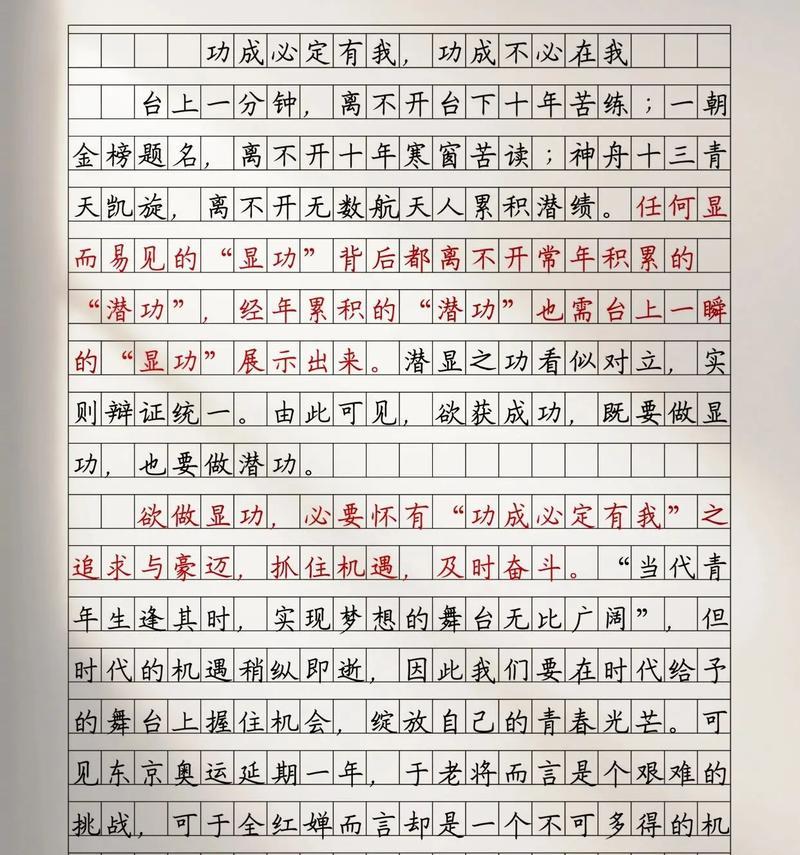 功成必定有我，功成不必在我
台上一分钟，离不开台下十年苦练；一朝
金榜题名，离不开十年寒窗苦读；神舟十三青
天凯旋，离不开无数航天人累积潜绩。任何显
而易见的“显功”背后都离不开常年积累的
“潜功”，经年累积的“潜功”也需台上一瞬
的“显功”展示出来。潜显之功看似对立，实
则辩证统一。由此可见，欲获成功，既要做显
功，也要做潜功。
欲做显功，必要怀有“功成必定有我”之
追求与豪迈，抓住机遇，及时奋斗。“当代青
年生逢其时，实现梦想的舞台无比广阔”，但
时代的机遇稍纵即逝，因此我们要在时代给予
的舞台上握住机会，绽放自己的青春光芒。可
见东京奥运延期一年，于老将而言是个艰难的
挑战，可于全红婵而言却是一个不可多得的机